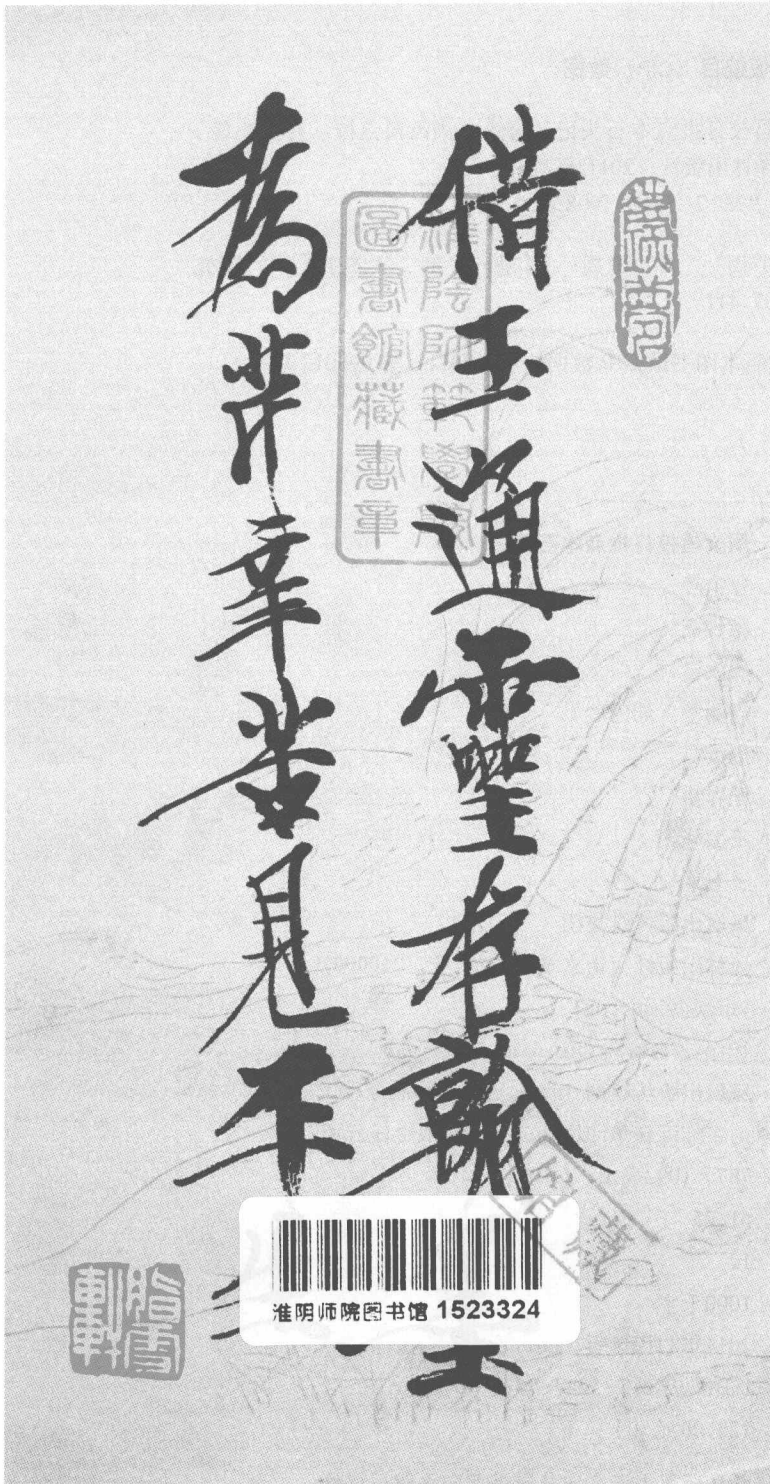 借玉通靈存翰
為芹辛苦見平
淮陰師範學院
圖書館藏書章
館藏
淮阴师院图书馆 1523324
脂雪軒